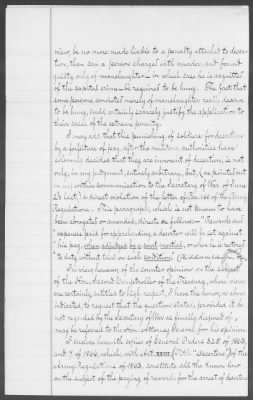 view, be no more made liable to a penalty attached to deser-
tion, than can a person charged with murder, and found
guilty only of manslaughter— in which case he is acquitted
of the capital crime— be required to be hung. The fact that
some persons convicted merely of manslaughter really deserve
to be hung, could certainly scarcely justify the application to
their cases of the extreme penalty.
I may add that this punishing of soldiers for desertion
by a forfeiture of pay, after the military authorities have
solemnly decided that they are innocent of desertion, is not
only, in my judgment, entirely arbitrary, but, (as pointed out
in my communication to the Secretary of War of June
last,) in direct violation of the letter of Par. of the Army
Regulations. This paragraph, which is not known to have
been abrogated or amended, directs as follows:— "Rewards and
"expenses paid for apprehending a deserter will be set against
"his pay, when adjudged by a court martial, or when he is restored
"to duty without trial on such condition."
In view, however, of the counter opinion on the subject
of the Hon. Second Comptroller of the Treasury, whose views
are certainly entitled to high respect, I have the honor, as above
indicated, to request that the question stated, provided it be
not regarded by the Secretary of War as finally disposed of,
may be referred to the Hon. Attorney General for his opinion.
I enclose herewith copies of General Orders 325 of 1863,
and 7 of 1864, which, with Art. (Title "Deserters") of the
Army Regulations of 1863, constitute all the known law
on the subject of the paying of rewards for the arrest of deserters